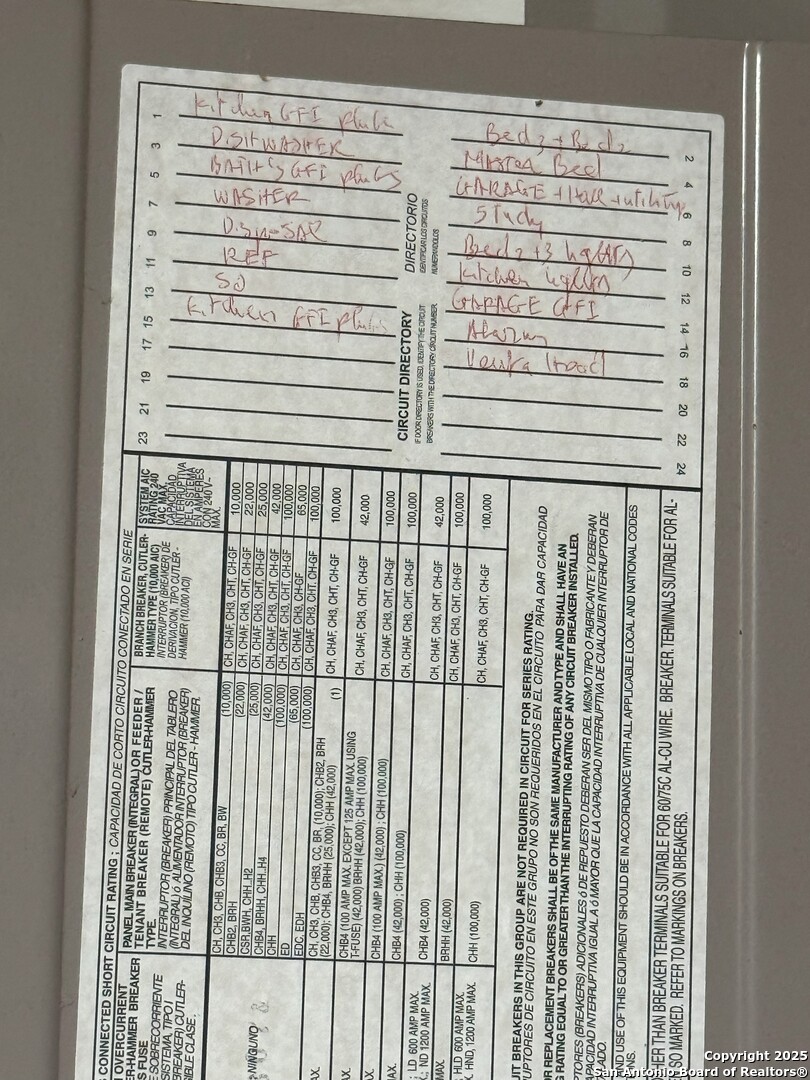 1 Kitchen GFI plugs
3 DISHWASHER
5 BATH'S GFI plugs
7 WASHER
9 DispoSAR
11 REF
13 SD
15 Kitchen GFI plugs
17
19
21
23
DIRECTORIO
IDENTIFICAR LOS CIRCUITOS
NUMERANDOLOS
CIRCUIT DIRECTORY
IF DOOR DIRECTORY IS USED, IDENTIFY THE CIRCUIT
BREAKERS WITH THE DIRECTORY CIRCUIT NUMBER.
Bed 3 + Bed 2 2
MASTER Bed 4
GARAGE + Hall + utility 6
Study 8
Bed 2 + 3 lights 10
Kitchen lights 12
GARAGE GFI 14
Alarm 16
Venta Hood 18
20
22
24
CONNECTED SHORT CIRCUIT RATING : CAPACIDAD DE CORTO CIRCUITO CONECTADO EN SERIE
OVERCURRENT
BREAKER
FUSE
SOBRECORRIENTE
NINGUNO
PANEL MAIN BREAKER (INTEGRAL) OR FEEDER /
TENANT BREAKER (REMOTE) CUTLER-HAMMER
TYPE.
INTERRUPTOR (BREAKER) PRINCIPAL DEL TABLERO
(INTEGRAL) ó ALIMENTADOR INTERRUPTOR (BREAKER)
DEL INQUILINO (REMOTO) TIPO CUTLER - HAMMER.
BRANCH BREAKER, CUTLER-
HAMMER TYPE (10,000 AIC)
INTERRUPTOR (BREAKER) DE
DERIVACION, TIPO CUTLER -
HAMMER (10,000 ACI)
SYSTEM AIC
RATING 240
VAC MAX.
CAPACIDAD
INTERRUPTIVA
DEL SISTEMA
EN AMPERES
CON 240 V~
MAX.
CH, CH3, CHB, CHB3, CC, BR, BW (10,000) CH, CHAF, CH3, CHT, CH-GF 10,000
CHB2, BRH (22,000) CH, CHAF, CH3, CHT, CH-GF 22,000
CSR, BWH, CHH..H2 (25,000) CH, CHAF, CH3, CHT, CH-GF 25,000
CHB4, BRHH, CHH..H4 (42,000) CH, CHAF, CH3, CHT, CH-GF 42,000
CHH (100,000) CH, CHAF, CH3, CHT, CH-GF 100,000
ED (65,000) CH, CHAF, CH3, CH-GF 65,000
EDC, EDH (100,000) CH, CHAF, CH3, CHT, CH-GF 100,000
CH, CH3, CHB, CHB3, CC, BR, (10,000); CHB2, BRH
(22,000); CHB4, BRHH (25,000); CHH (42,000) (1) CH, CHAF, CH3, CHT, CH-GF 100,000
CHB4 (100 AMP MAX. EXCEPT 125 AMP MAX. USING
T-FUSE) (42,000) BRHH (42,000) ; CHH (100,000) CH, CHAF, CH3, CHT, CH-GF 42,000
CHB4 (100 AMP MAX.) (42,000) ; CHH (100,000) CH, CHAF, CH3, CHT, CH-GF 100,000
CHB4 (42,000) ; CHH (100,000) CH, CHAF, CH3, CHT, CH-GF 100,000
LD 600 AMP MAX.
ND 1200 AMP MAX. CHB4 (42,000) CH, CHAF, CH3, CHT, CH-GF 42,000
BRHH (42,000) CH, CHAF, CH3, CHT, CH-GF 100,000
HLD 600 AMP MAX.
HND, 1200 AMP MAX. CHH (100,000) CH, CHAF, CH3, CHT, CH-GF 100,000
BREAKERS IN THIS GROUP ARE NOT REQUIRED IN CIRCUIT FOR SERIES RATING.
DE CIRCUITO EN ESTE GRUPO NO SON REQUERIDOS EN EL CIRCUITO PARA DAR CAPACIDAD
REPLACEMENT BREAKERS SHALL BE OF THE SAME MANUFACTURER AND TYPE AND SHALL HAVE AN
RATING EQUAL TO OR GREATER THAN THE INTERRUPTING RATING OF ANY CIRCUIT BREAKER INSTALLED.
(BREAKERS) ADICIONALES ó DE REPUESTO DEBERAN SER DEL MISMO TIPO O FABRICANTE Y DEBERAN
CAPACIDAD INTERRUPTIVA IGUAL A ó MAYOR QUE LA CAPACIDAD INTERRUPTIVA DE CUALQUIER INTERRUPTOR DE
USE OF THIS EQUIPMENT SHOULD BE IN ACCORDANCE WITH ALL APPLICABLE LOCAL AND NATIONAL CODES
THAN BREAKER TERMINALS SUITABLE FOR 60/75C AL-CU WIRE. BREAKER TERMINALS SUITABLE FOR AL-
SO MARKED. REFER TO MARKINGS ON BREAKERS.
Copyright 2025
San Antonio Board of Realtors®